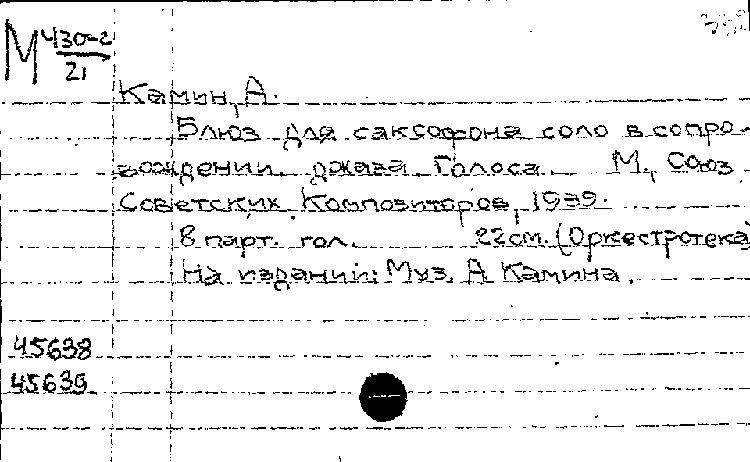 М 430-2
21
Камин, А.
Блюз для саксофона соло в сопро-
вождении джаза. Голоса. М., Союз
Советских Композиторов, 1939.
8 парт. гол. 22 см. (Оркестротека)
На издании: Муз. А Камина.
45638
45639